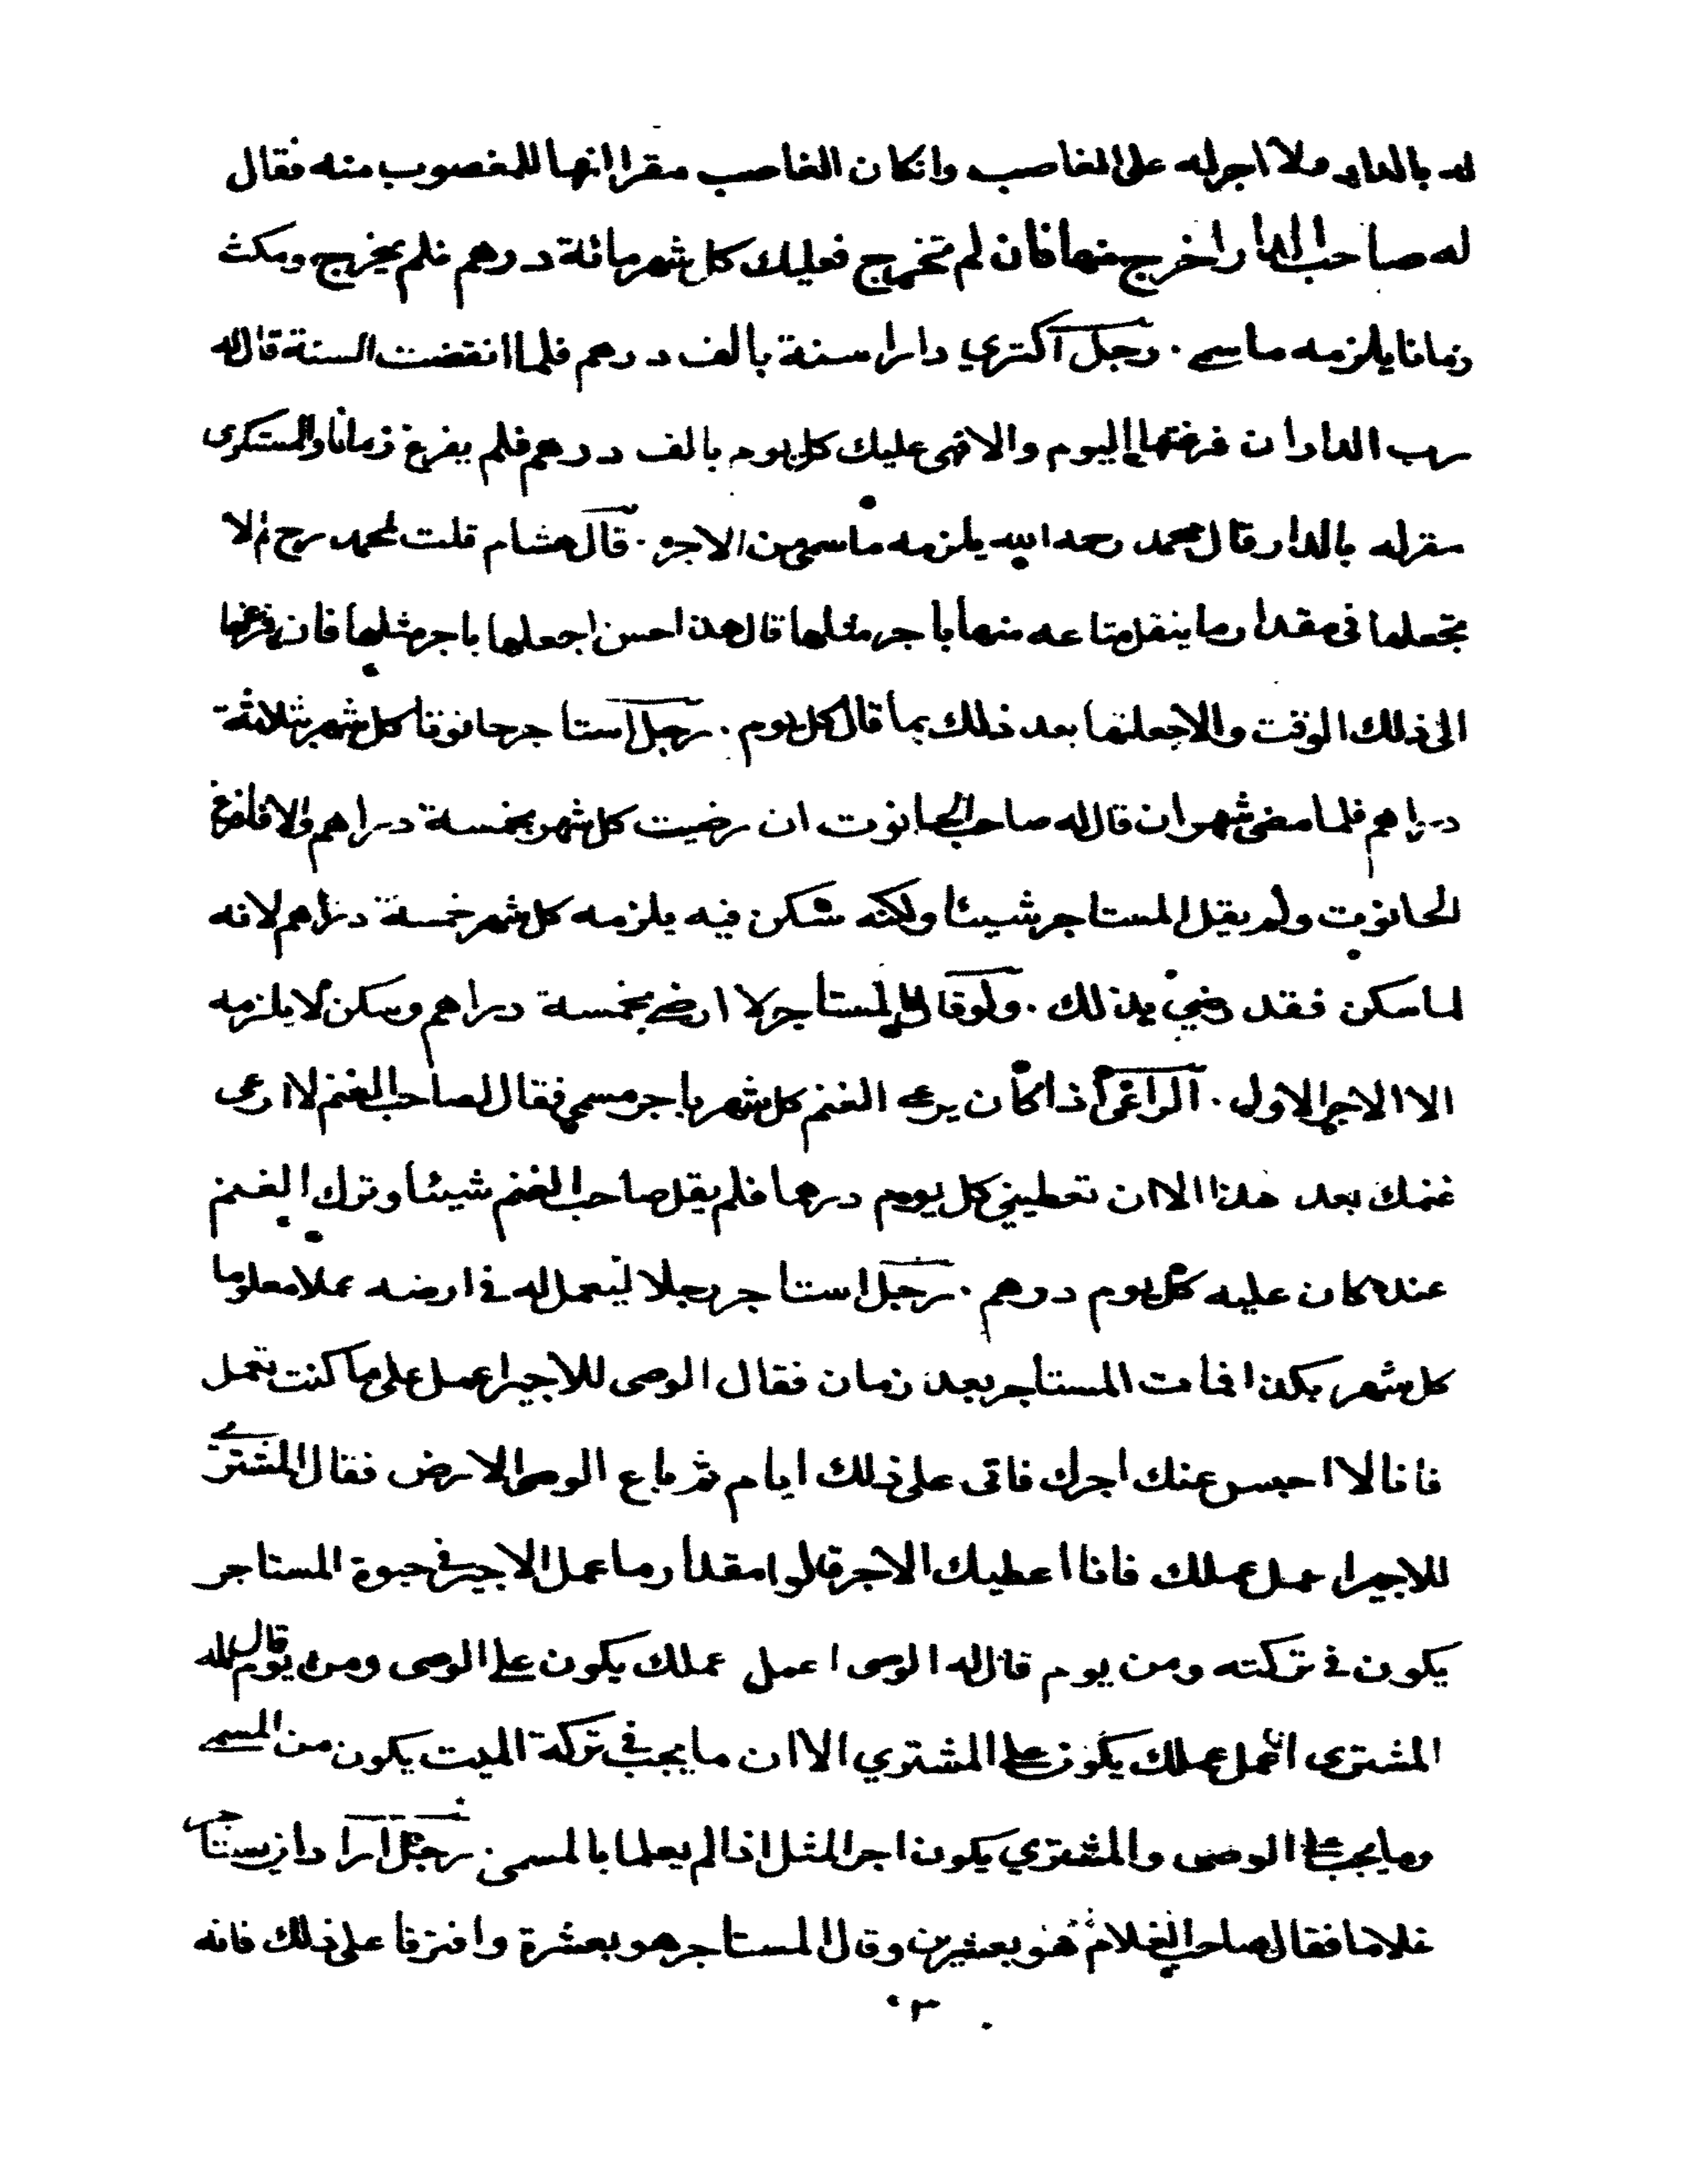 له بالدار ولا اجر له على الغاصب وانكان الغاصب مقرا انها للمغصوب منه فقال
له صاحب الدار اخرج منها فان لم تخرج فعليك كل شهر مائة درهم فلم يخرج ومكث
زمانا يلزمه ما سمى . رجل اكترى دارا سنة بالف درهم فلما انقضت السنة قال له
رب الدار ان فرغتها اليوم والا فهى عليك كل يوم بالف درهم فلم يفرغ زمانا والمستكرى
مقر له بالدار قال محمد رحمه الله يلزمه ما سمى من الاجر . قال هشام قلت لمحمد رح لم لا
تجعلها فى مقدار ما ينقل متاعه منها باجر مثلها قال هذا حسن اجعلها باجر مثلها فان فرغها
الى ذلك الوقت والا جعلتها بعد ذلك بما قال كل يوم . رجل استاجر حانوتا كل شهر بثلاثة
دراهم فلما مضى شهران قال له صاحب الحانوت ان رضيت كل شهر بخمسة دراهم والا فافرغ
الحانوت ولم يقل المستاجر شيئا ولكنه سكن فيه يلزمه كل شهر خمسة دراهم لانه
لما سكن فقد رضي بذلك . ولو قال المستاجر لا ارضى بخمسة دراهم وسكن لا يلزمه
الا الاجر الاول . الراعى اذا كان يرعى الغنم كل شهر باجر مسمى فقال لصاحب الغنم لا ارعى
غنمك بعد هذا الا ان تعطيني كل يوم درهما فلم يقل صاحب الغنم شيئا وترك الغنم
عنده كان عليه كل يوم درهم . رجل استاجر رجلا ليعمل له فى ارضه عملا معلوما
كل شهر بكذا فمات المستاجر بعد زمان فقال الوصى للاجير اعمل على ما كنت تعمل
فانا لا احبس عنك اجرك فاتى على ذلك ايام ثم باع الوصى الارض فقال المشترى
للاجير اعمل عملك فانا اعطيك الاجر قالوا مقدار ما عمل الاجير فى حيوة المستاجر
يكون فى تركته ومن يوم قال له الوصى اعمل عملك يكون على الوصى ومن يوم قال له
المشترى اعمل عملك يكون على المشتري الا ان ما يجب فى تركة الميت يكون من المسمى
وما يجب على الوصى والمشتري يكون اجر المثل اذا لم يعلما بالمسمى . رجل اراد ان يستاجر
غلاما فقال صاحب الغلام هو بعشرين وقال المستاجر هو بعشرة وافترقا على ذلك فانه